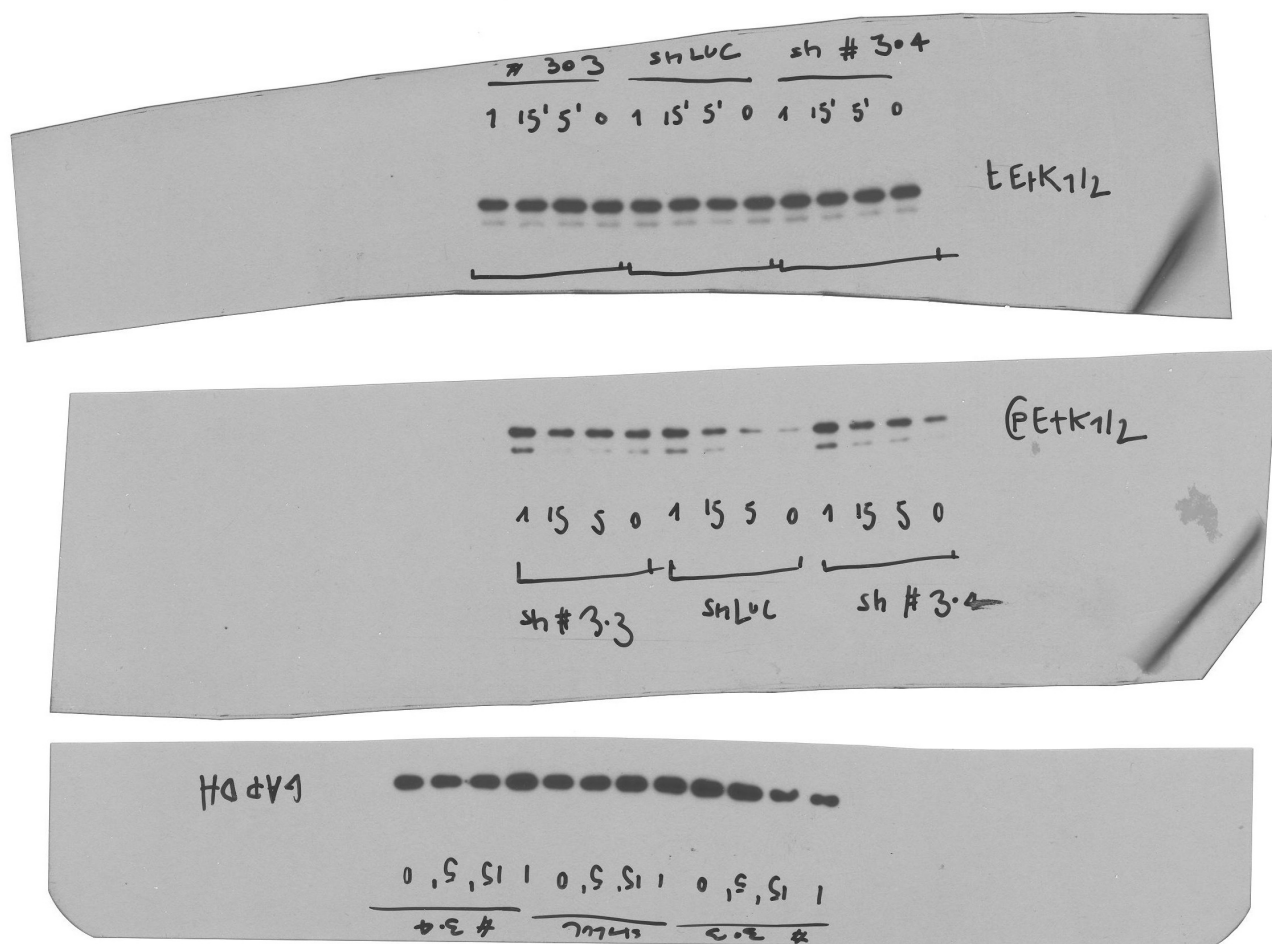 # 303 shLUC sh # 3.4
1 15' 5' 0 1 15' 5' 0 1 15' 5' 0
tErK1/2
pErK1/2
1 15 5 0 1 15 5 0 1 15 5 0
sh # 3.3 shLUC sh # 3.4
GAPDH
1 15' 5' 0 1 15' 5' 0 1 15' 5' 0
# 3.3 shLUC # 3.4